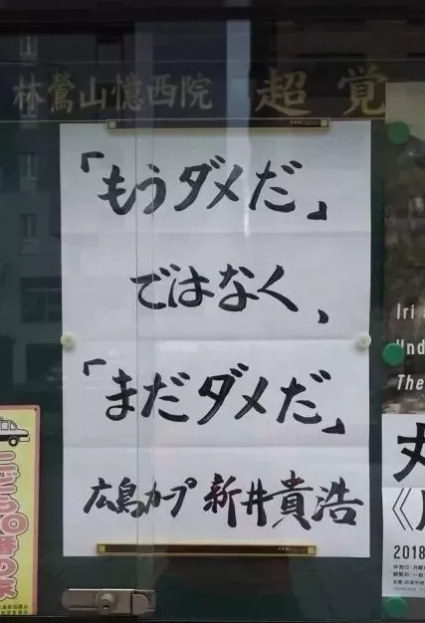 林鶯山憶西院 超覚
「もうダメだ」
ではなく、
「まだダメだ」
広島カープ 新井貴浩
Iri
Und
The
2018